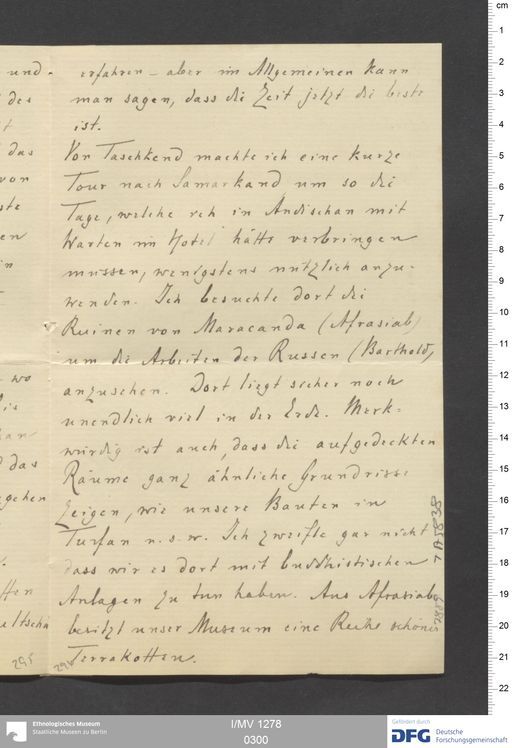 erfahren – aber im Allgemeinen kann
man sagen, dass die Zeit jetzt die beste
ist.
Von Taschkend machte ich eine kurze
Tour nach Samarkand um so die
Tage, welche ich in Andischan mit
Warten im Hotel hätte verbringen
müssen, wenigstens nützlich anzu-
wenden. Ich besuchte dort die
Ruinen von Maracanda (Afrasiab)
um die Arbeiten der Russen (Barthold)
anzusehen. Dort liegt sicher noch
unendlich viel in der Erde. Merk=
würdig ist auch, dass die aufgedeckten
Räume ganz ähnliche Grundrisse
zeigen, wie unsere Bauten in
Turfan u.s.w. Ich zweifle gar nicht
dass wir es dort mit buddhistischen
Anlagen zu tun haben. Aus Afrasiab
besitzt unser Museum eine Reihe schöner
Terrakotten.
und
des
das
von
en
in
wo
das
gehen
295
Ethnologisches Museum
Staatliche Museen zu Berlin
I/MV 1278
0300
Gefördert durch
DFG Deutsche
Forschungsgemeinschaft
cm
1
2
3
4
5
6
7
8
9
10
11
12
13
14
15
16
17
18
19
20
21
22